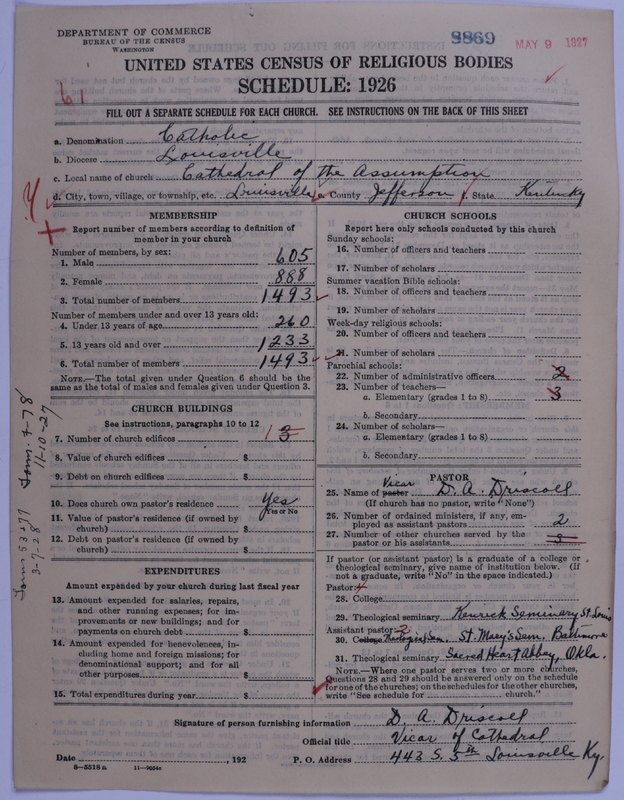 DEPARTMENT OF COMMERCE
BUREAU OF THE CENSUS
WASHINGTON
8869
MAY 9 1927
UNITED STATES CENSUS OF RELIGIOUS BODIES
SCHEDULE: 1926
61
FILL OUT A SEPARATE SCHEDULE FOR EACH CHURCH. SEE INSTRUCTIONS ON THE BACK OF THIS SHEET
a. Denomination Catholic
b. Diocese Louisville
c. Local name of church Cathedral of the Assumption
d. City, town, village, or township, etc. Louisville e. County Jefferson f. State Kentucky
MEMBERSHIP
Report number of members according to definition of
member in your church
Number of members, by sex:
1. Male 605
2. Female 888
3. Total number of members 1493
Number of members under and over 13 years old:
4. Under 13 years of age 260
5. 13 years old and over 1233
6. Total number of members 1493
NOTE.—The total given under Question 6 should be the
same as the total of males and females given under Question 3.
CHURCH BUILDINGS
See instructions, paragraphs 10 to 12
7. Number of church edifices 1 3
8. Value of church edifices $
9. Debt on church edifices $
10. Does church own pastor's residence Yes
Yes or No
11. Value of pastor's residence (if owned by
church) $
12. Debt on pastor's residence (if owned by
church) $
EXPENDITURES
Amount expended by your church during last fiscal year
13. Amount expended for salaries, repairs,
and other running expenses; for im-
provements or new buildings; and for
payments on church debt $
14. Amount expended for benevolences, in-
cluding home and foreign missions; for
denominational support; and for all
other purposes $
15. Total expenditures during year $
CHURCH SCHOOLS
Report here only schools conducted by this church
Sunday schools:
16. Number of officers and teachers
17. Number of scholars
Summer vacation Bible schools:
18. Number of officers and teachers
19. Number of scholars
Week-day religious schools:
20. Number of officers and teachers
21. Number of scholars
Parochial schools:
22. Number of administrative officers 2
23. Number of teachers—
a. Elementary (grades 1 to 8) 3
b. Secondary
24. Number of scholars—
a. Elementary (grades 1 to 8)
b. Secondary
PASTOR
Vicar
25. Name of pastor D. A. Driscoll
(If church has no pastor, write "None")
26. Number of ordained ministers, if any, em-
ployed as assistant pastors 2
27. Number of other churches served by the
pastor or his assistants
If pastor (or assistant pastor) is a graduate of a college or
theological seminary, give name of institution below. (If
not a graduate, write "No" in the space indicated.)
Pastor: 4
28. College
29. Theological seminary Kenrick Seminary St. Louis
Assistant pastor: 2
30. College Theological Sem. St. Mary's Sem. Baltimore
31. Theological seminary Sacred Heart Abbey, Okla.
NOTE.—Where one pastor serves two or more churches,
Questions 28 and 29 should be answered only on the schedule
for one of the churches; on the schedules for the other churches,
write "See schedule for church."
Signature of person furnishing information D. A. Driscoll
Official title Vicar of Cathedral
Date , 192 P. O. Address 443 S. 5th Louisville Ky.
8-5518a 11-9554a
11-10-27
3-7-28